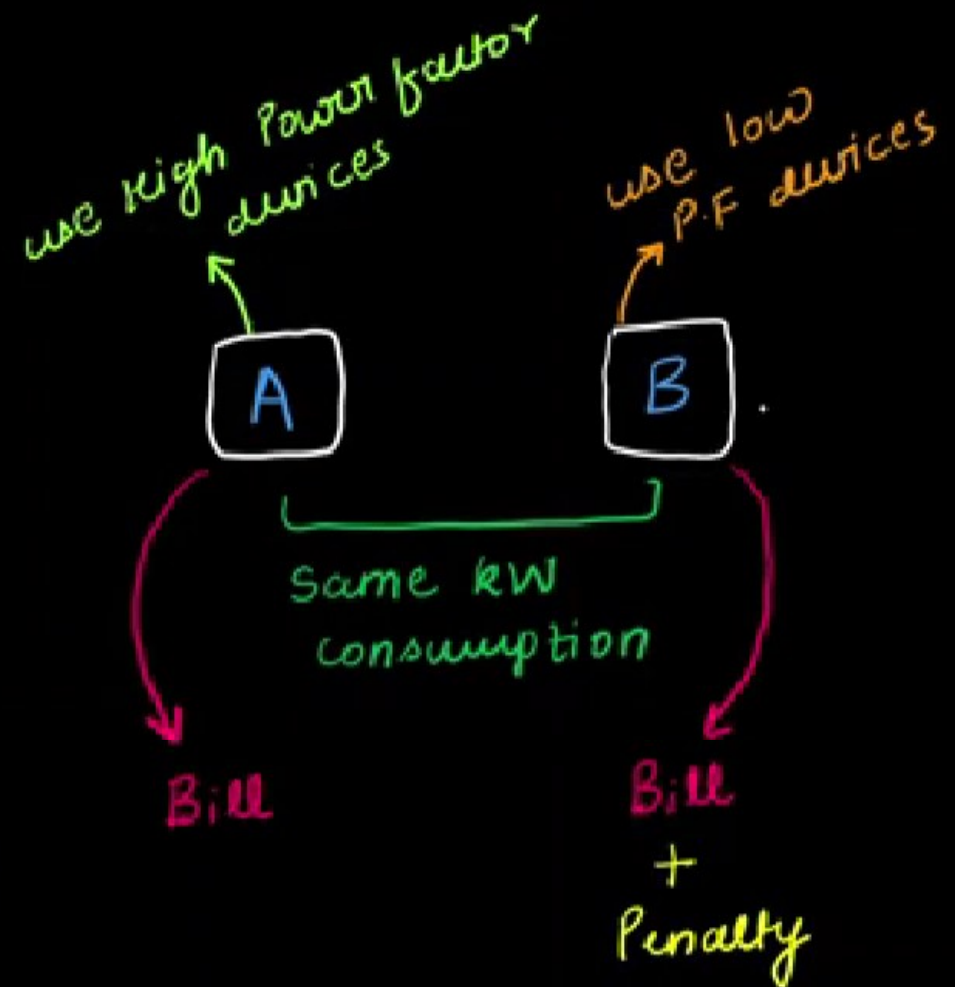 use High Power factor
devices
use low
P.F devices
A
B
Same kW
consumption
Bill
Bill
+
Penalty